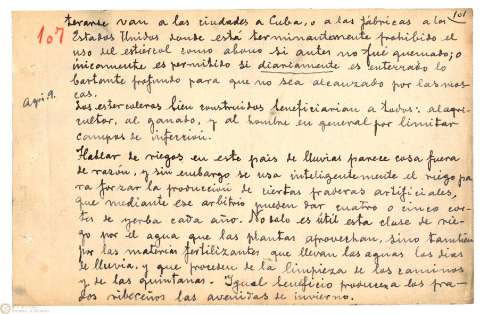 101
107
terarse van a las ciudades a Cuba, o a las fábricas a los
Estados Unidos donde está terminantemente prohibido el
uso del estiércol como abono si antes no fué quemado; o
únicamente es permitido si diariamente es enterrado lo
bastante profundo para que no sea alcanzado por las mos-
cas.
Agri. 9.
Los estercoleros bien construidos beneficiarian a todos: al agri-
cultor, al ganado, y al hombre en general por limitar
campos de infección.
Hablar de riegos en este pais de lluvias parece cosa fuera
de razón, y sin embargo se usa inteligentemente el riego pa
ra forzar la producción de ciertas praderas artificiales,
que mediante ese arbitrio pueden dar cuatro o cinco cor-
tes de yerba cada año. No solo es útil esta clase de rie-
go por el agua que las plantas aprovechan, sino también
por las materias fertilizantes que llevan las aguas los dias
de lluvia, y que proceden de la limpieza de los caminos
y de las quintanas. Igual beneficio producen a los pra-
dos ribereños las avenidas de invierno.